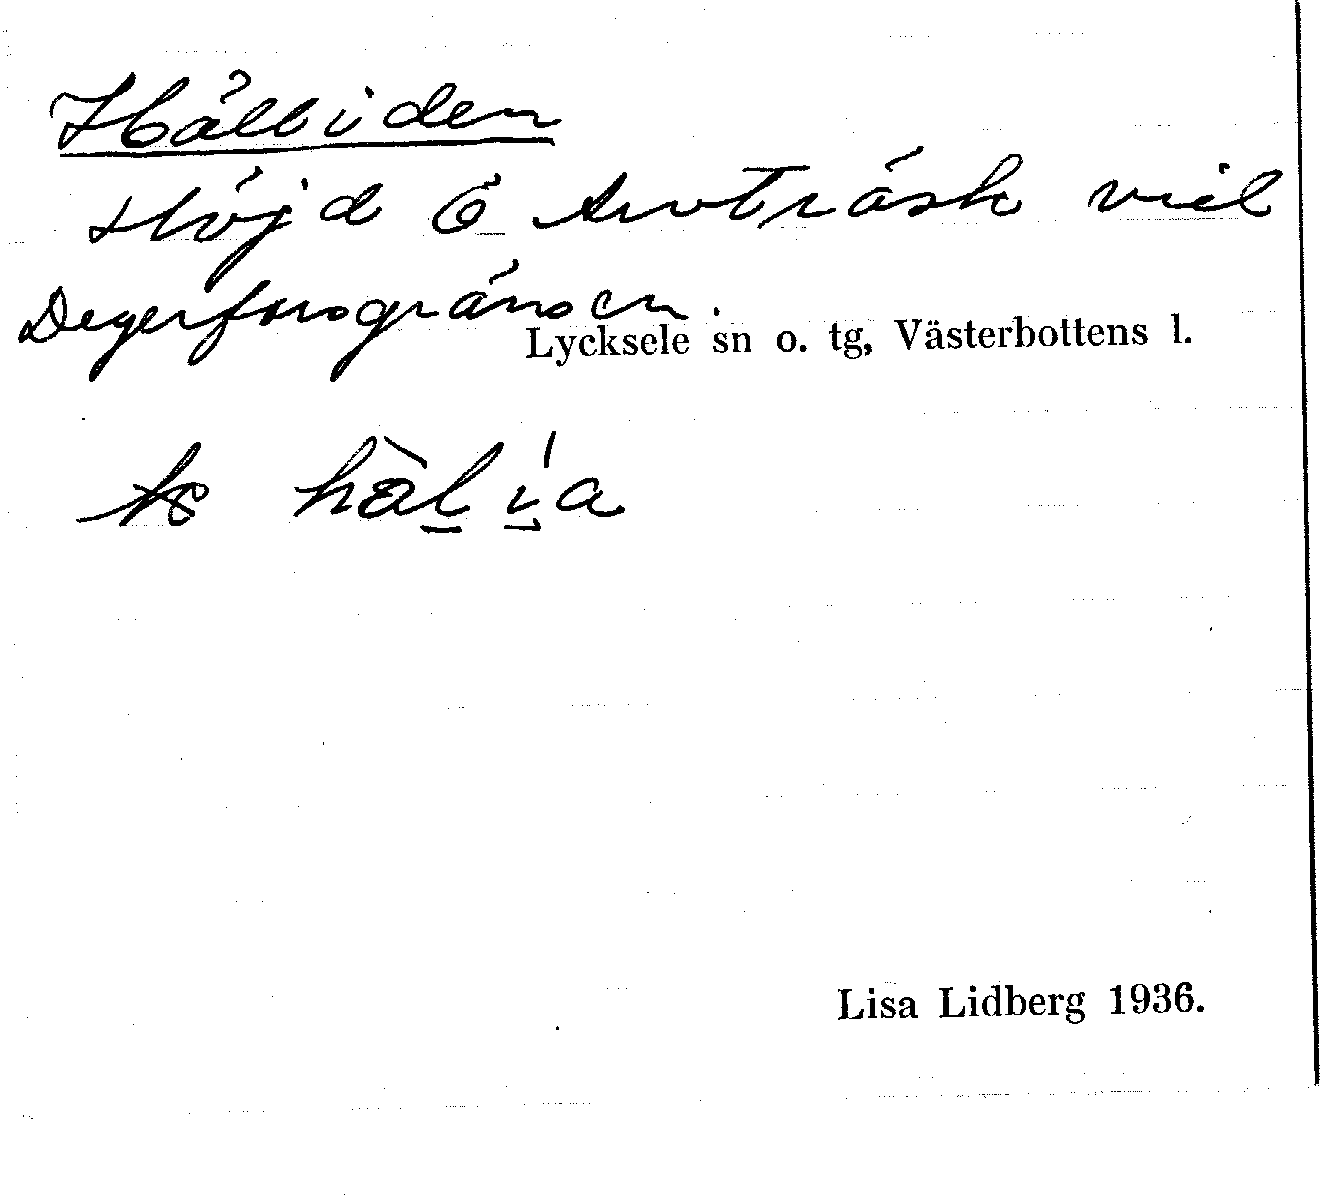 Hålliden
Höjd Ö Arvträsk vid
Degerforsgränsen.
Lycksele sn o. tg, Västerbottens l.
hòlía
Lisa Lidberg 1936.